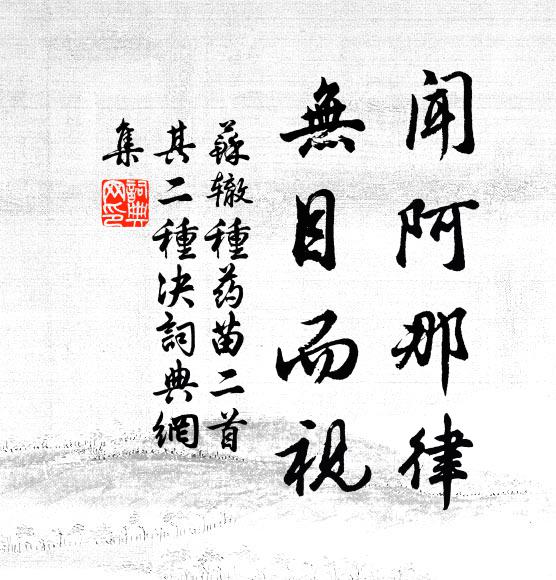 闻阿那律
無目而視
蘇辙種药苗二首
其二種决詞典網
集
詞典
网印